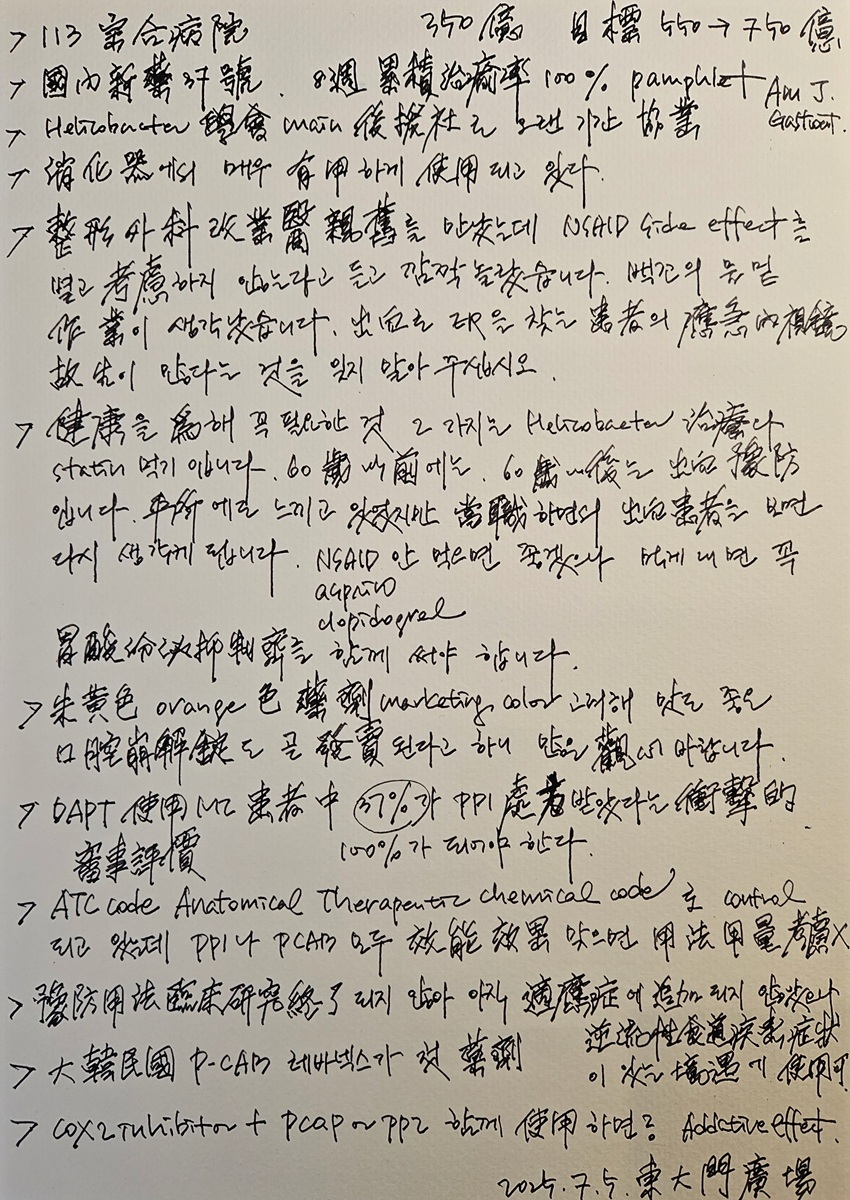 > 113 宗合病院 350億 目標 550→750億
> 國內新藥 37號. 8週 累積治癒率 100% pamphlet Am J. Gastroent.
> Helicobacter 學會 main 後援社로 오랜 기간 協業
> 消化器에서 매우 有用하게 使用되고 있다.
> 整形外科 改業醫 親舊를 만났는데 NSAID side effect를
별로 考慮하지 않는다고 듣고 깜짝 놀랐습니다. 빅간의 물밑
作業이 생각났습니다. 出血로 ER을 찾는 患者의 應急內視鏡
故生이 많다는 것을 잊지 말아 주십시오.
> 健康을 爲해 꼭 필요한 것 2가지는 Helicobacter 治療다
statin 먹기 입니다. 60歲 以前에는. 60歲 以後는 出血 豫防
입니다. 平所에도 느끼고 있었지만 當職하면서 出血患者을 보면
다시 생각케 됩니다. NSAID 안 먹으면 좋겠으나 먹게 되면 꼭
aspirin
clopidogrel
胃酸分泌抑制劑를 함께 써야 합니다.
> 朱黃色 orange色 藥劑 marketing color 고려해 맛도 좋은
口腔崩解錠도 곧 發賣된다고 하니 많은 觀心 바랍니다.
> DAPT 使用 MI 患者 中 37%가 PPI 處方받았다는 衝擊的
審事評價 100%가 되어야 한다.
> ATC code Anatomical Therapeutic chemical code로 control
되고 있는데 PPI나 PCAB 모두 效能效果 맞으면 用法用量 考慮X
> 豫防用法 臨床硏究 終了되지 않아 아직 適應症에 追加되지 않았으나
逆流性食道疾患 症狀
이 있는 境遇에 使用可
> 大韓民國 P-CAB 레바넥스가 첫 藥劑
> COX2 inhibitor + PCAP or PPI 함께 使用하면? Addictive effect.
2025. 7. 5. 東大門廣場